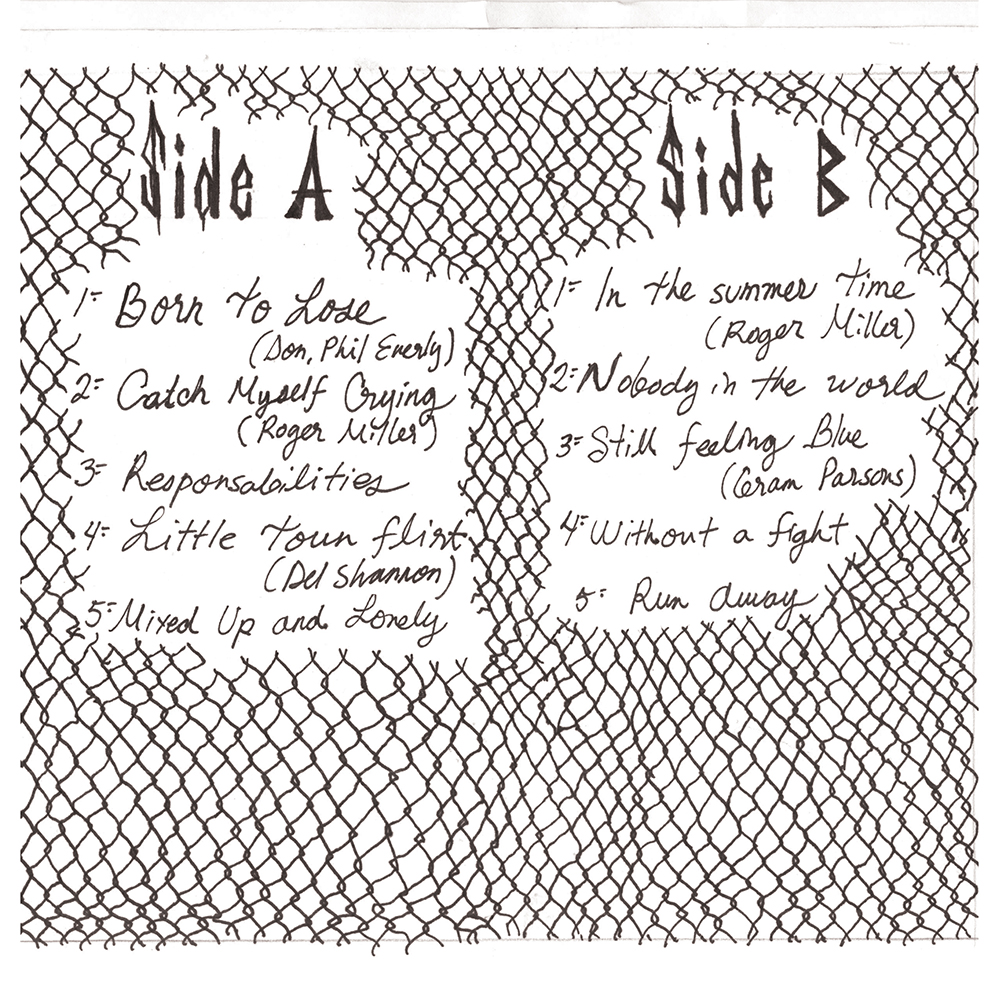 Side A
1- Born to Lose
(Don, Phil Everly)
2- Catch Myself Crying
(Roger Miller)
3- Responsabilities
4- Little Town flirt
(Del Shannon)
5- Mixed Up and Lonely
Side B
1- In the summer time
(Roger Miller)
2- Nobody in the world
3- Still feeling Blue
(Gram Parsons)
4- Without a fight
5- Run away